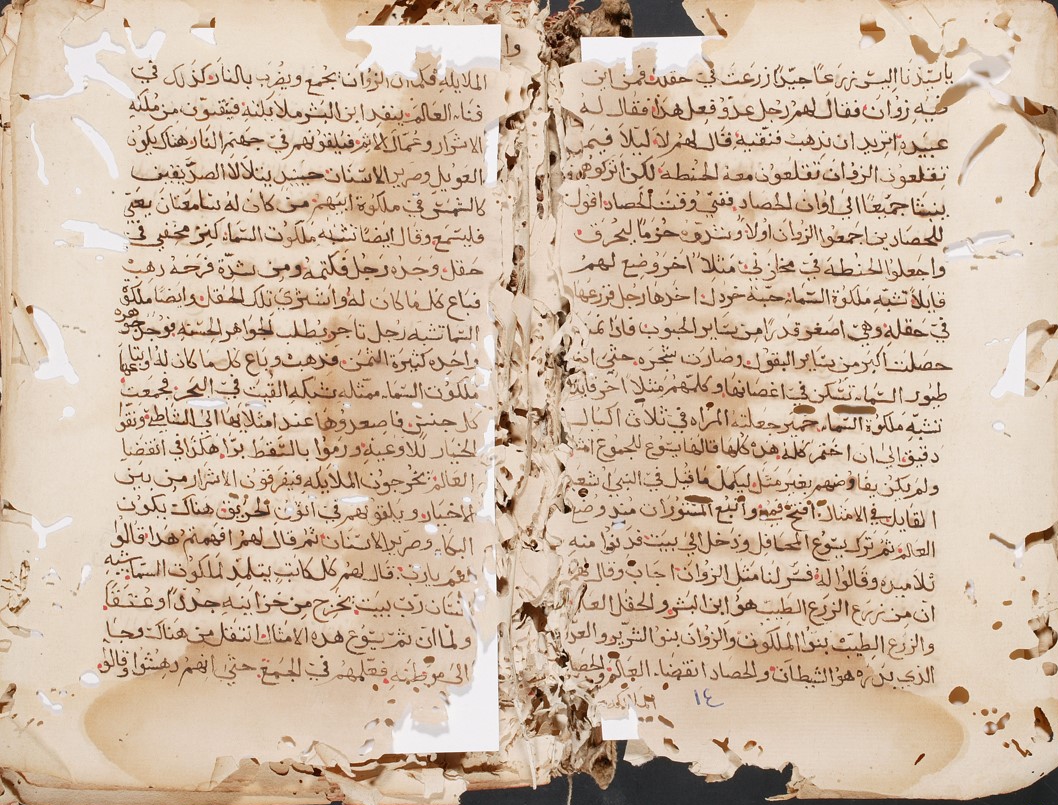 يا سيدنا اليس زرعًا جيدًا زرعت في حقلك فمن اين
فيه زوان فقال لهم رجل عدو فعل هذا فقال له
عبيده اتريد ان نذهب فننقيه قال لهم لا ليلا فيما
تقلعون الزوان تقلعون معه الحنطه لكن اتركوهما
ينبتا جميعًا الى اوان الحصاد ففي وقت الحصاد اقول
للحصادين اجمعوا الزوان اولا وشدوه حزمًا ليحرق
واجعلوا الحنطه في مخازني مثلا اخر وضع لهم
قايلا تشبه ملكوة السما حبة خردل اخدها رجل فزرعها
في حقله وهي اصغر قدرًا من ساير الحبوب فاذا نمت
حصلت اكبر من ساير البقول وصارت شجره حتي ان
طيور السما تسكن في اغصانها وكلمهم مثلا اخر قايلا
تشبه ملكوة السما خمير جعلته المراه في ثلاث اكيال
دقيق الى ان اختمر كله هذه كلها قالها يسوع للجموع
ولم يكن يفاوضهم بغير مثل ليكمل ما قيل في النبي
القايل في الامثال افتح فمي وانبع المستورات منذ وضع
العالم ثم ترك يسوع المحافل ودخل الى بيت فدنوا منه
تلاميده وقالوا له فسر لنا مثل الزوان اجاب وقال
ان من زرع الزرع الطيب هو ابن البشر والحقل العالم
والزرع الطيب بنو الملكوت والزوان بنو الشرير والعدو
الدي بدره هو الشيطان والحصاد انقضا العالم والحصا
١٤
وا
الملايكه فكما ان الزوان يجمع ويضرب بالنار كذلك في
فناء العالم ينفد ابن البشر ملايكته فينقون من ملكه
الاشرار وعمال الاثم فيلقونهم في جهنم النار هناك يكون
العويل وصرير الاسنان حينيد يتلالا الصديقين
كالشمس في ملكوة ابيهم من كان له سامعتان يعي
فليسمع وقال ايضًا تشبه ملكوت السما كنز مخفي في
حقل وجده رجل فكتمه ومن شدة فرحه ذهب
فباع كل ما كان له واشترى تلك الحقل وايضا ملكوة
السما تشبه رجل تاجر يطلب الجواهر الحسنه فوجد جوهره
واحده كثيرة الثمن فذهب وباع كل ما كان له وابتاعها
ملكوت السما ممثله شبكه القيت في البحر فجمعت
كل جنس فاصعدوها عند امتلايها الى الشاطئ ونقوا
الخيار للاوعيه ورموا بالسقط برا هكذا في انقضا
العالم تخرجون الملايكه فيفرقون الاشرار من بين
الاخيار ويلقونهم في اتون الحريق هناك يكون
البكا وصرير الاسنان ثم قال لهم افهمتم هذا قالوا
نعم يارب قال لهم كل كاتب يتلمذ لملكوت السما يشبه
انسان رب بيت يخرج من خزاينه جددًا وعتقًا
ولما ان تمم يسوع هذه الامثال انتقل من هناك وجا
الى موطنه فعلمهم في المجمع حتي انهم دهشوا وقالو